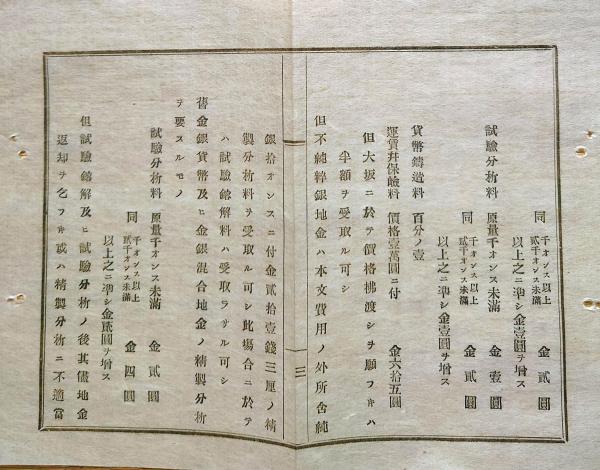 同 千オンス以上貳千オンス未滿 金貳圓
以上之ニ準シ金壹圓ヲ增ス
試驗分析料 原量千オンス未滿 金壹圓
同 千オンス以上貳千オンス未滿 金貳圓
以上之ニ準シ金壹圓ヲ增ス
貨幣鑄造料 百分ノ壹
運賃幷保險料 價格壹萬圓ニ付 金六拾五圓
但大坂ニ於テ價格拂渡シヲ願フ片ハ
半額ヲ受取ル可シ
但不純粹銀地金ハ本文費用ノ外所含純
三
銀拾オンスニ付金貳拾壹錢三厘ノ精
製分析料ヲ受取ル可シ此塲合ニ於テ
ハ試驗鎔解料ハ受取ラサル可シ
舊金銀貨幣及ヒ金銀混合地金ノ精製分析
ヲ要スルモノ
試驗分析料 原量千オンス未滿 金貳圓
同 千オンス以上貳千オンス未滿 金四圓
以上之ニ準シ金貳圓ヲ增ス
但試驗鎔解及ヒ試驗分析ノ後其儘地金
返却ヲ乞フ片或ハ精製分析ニ不適當